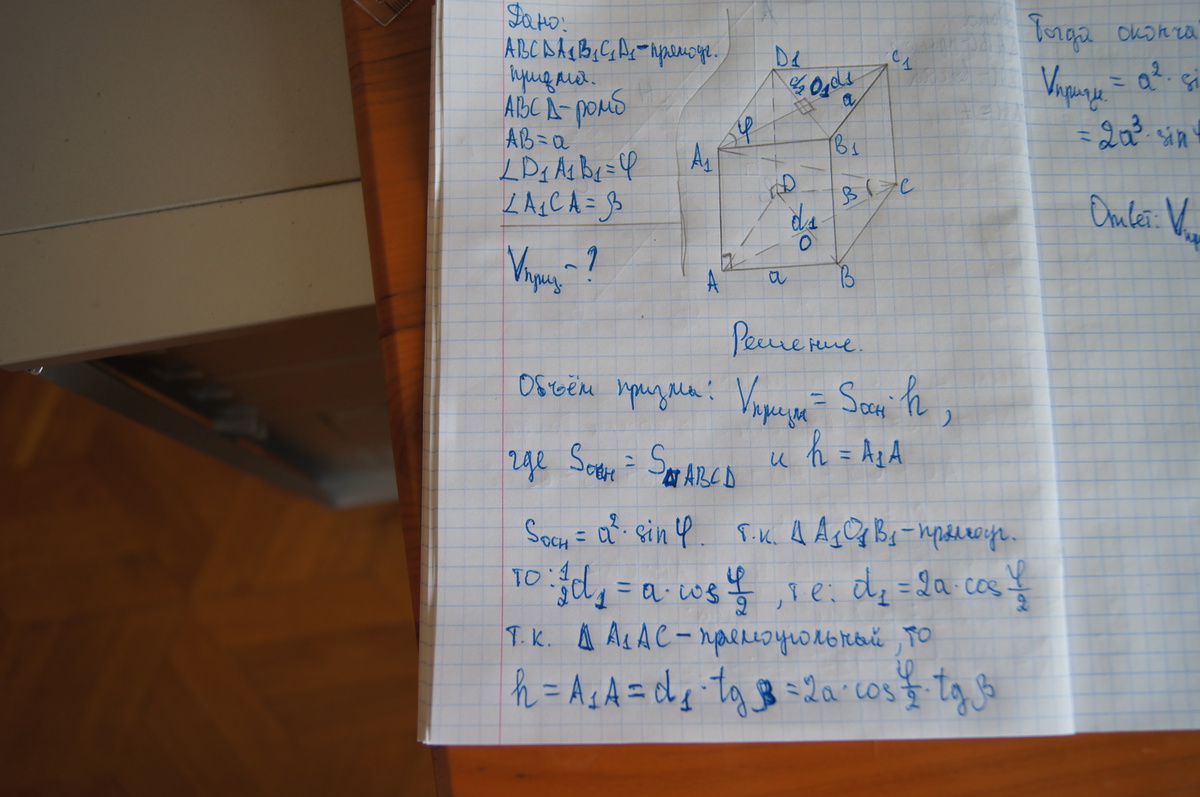 Дано:
ABCDA1B1C1D1-прямоуг.
призма.
ABCD-ромб
AB=a
∠D1A1B1=φ
∠A1CA=β
Vприз.-?
D1
C1
O1
d1
a
φ
A1
B1
D
β
C
d1
O
A
a
B
Решение.
Объём призма: Vпризм=Sосн·h,
где Sосн=SABCD и h=A1A
Sосн=a²·sinφ. т.к. ΔA1O1B1-прямоуг.
то: 1/2d1=a·cosφ/2, т.е: d1=2a·cosφ/2
т.к. ΔA1AC-прямоугольный, то
h=A1A=d1·tgβ=2a·cosφ/2·tgβ
Тогда
Vпризм=a²·
=2a³·sin
Ответ: